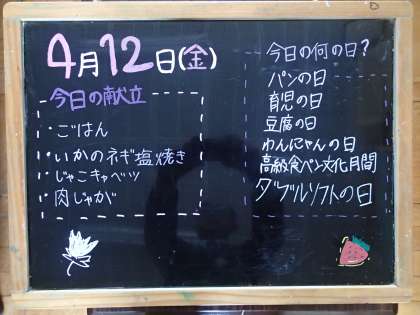 4月12日(金)
今日の献立
・ごはん
・いかのネギ塩焼き
・じゃこキャベツ
・肉じゃが
今日の何の日?
パンの日
育児の日
豆腐の日
わんにゃんの日
高級食パン文化月間
ダブルソフトの日